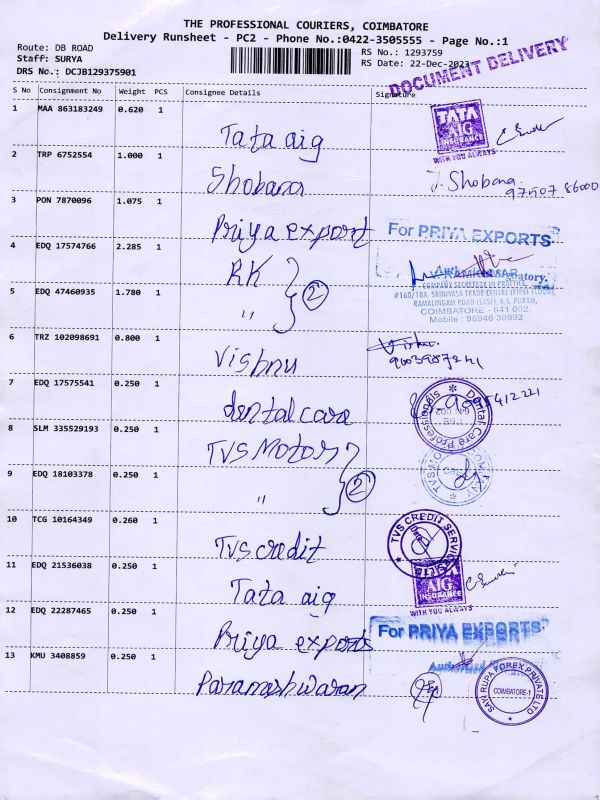 THE PROFESSIONAL COURIERS, COIMBATORE
Delivery Runsheet - PC2 - Phone No.:0422-3505555 - Page No.:1
Route: DB ROAD
Staff: SURYA
DRS No.: DCJB129375901
RS No.: 1293759
RS Date: 22-Dec-2023
DOCUMENT DELIVERY
S No Consignment No Weight PCS Consignee Details Signature
1 MAA 863183249 0.620 1 Tata aig
TATA AIG INSURANCE
WITH YOU ALWAYS
2 TRP 6752554 1.000 1 Shobana
J. Shobana
97507 86000
3 PON 7870096 1.075 1 Priya export
For PRIYA EXPORTS
4 EDQ 17574766 2.285 1 RK
COMPANY SECRETARY IN PRACTICE
#160/1BA, SRINIVASA TRADE CENTRE (FIRST FLOOR),
RAMALINGAM ROAD (EAST), R.S. PURAM,
COIMBATORE - 641 002.
Mobile : 98946 30992
5 EDQ 47460935 1.780 1 " 2
6 TRZ 102098691 0.800 1 Vishnu
7 EDQ 17575541 0.250 1 dental care
Dental Care Professionals
8 SLM 335529193 0.250 1 TVS Motors
9 EDQ 18103378 0.250 1 " 2
10 TCG 10164349 0.260 1 TVS credit
TVS CREDIT SERVICES
11 EDQ 21536038 0.250 1 Tata aig
AIG INSURANCE
WITH YOU ALWAYS
12 EDQ 22287465 0.250 1 Priya exports
For PRIYA EXPORTS
13 KMU 3408859 0.250 1 Parameshwaran
SAYI RUPA FOREX PRIVATE LTD
COIMBATORE-1